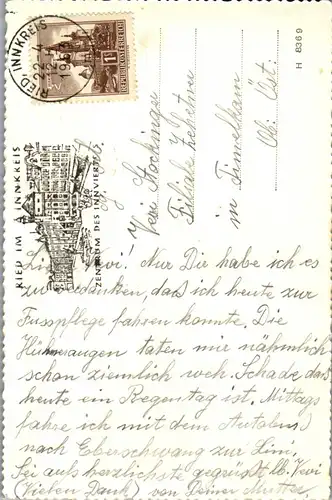 RIED/INNKREIS
22. 4.
1 S
REPUBLIK ÖSTERREICH
H 8369
RIED IM INNKREIS
ZENTRUM DES INNVIERTELS
Vevi Stockinger
Filiale Zelcher
in Timelkam
Ob. Öst.
Vevi! Nur Dir habe ich es
zu bedanken, daß ich heute zur
Fusspflege fahren konnte. Die
Hühneraugen taten mir nähmlich
schon ziemlich weh. Schade, daß
heute ein Regentag ist. Mittags
fahre ich mit dem Autobus
nach Eberschwang zur Lini,
Sei aufs herzlichste gegrüßt lb. Vevi
(Vielen Dank) von Deiner Mutter